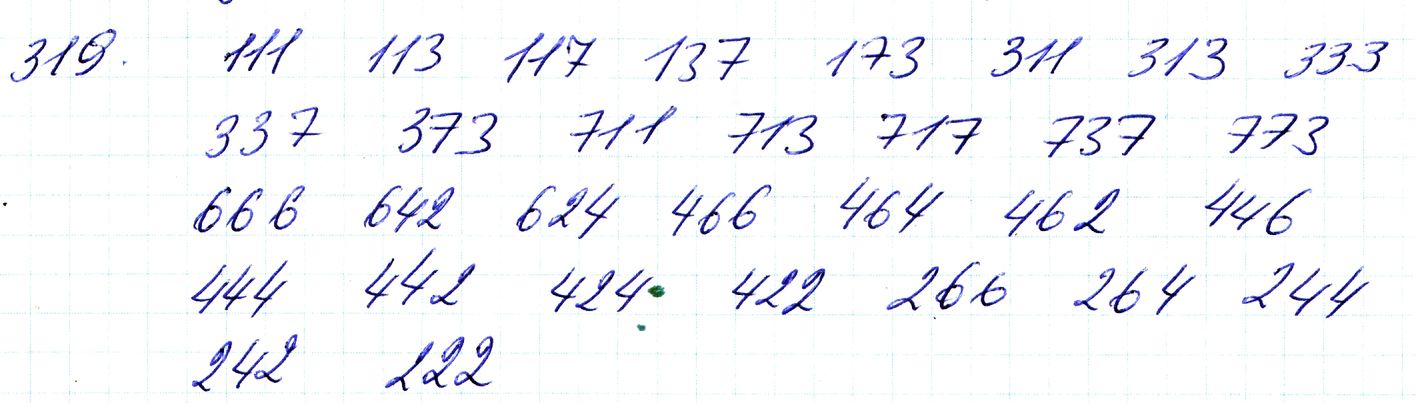 319. 111 113 117 137 173 311 313 333
337 373 711 713 717 737 773
666 642 624 466 464 462 446
444 442 424 422 266 264 244
242 222